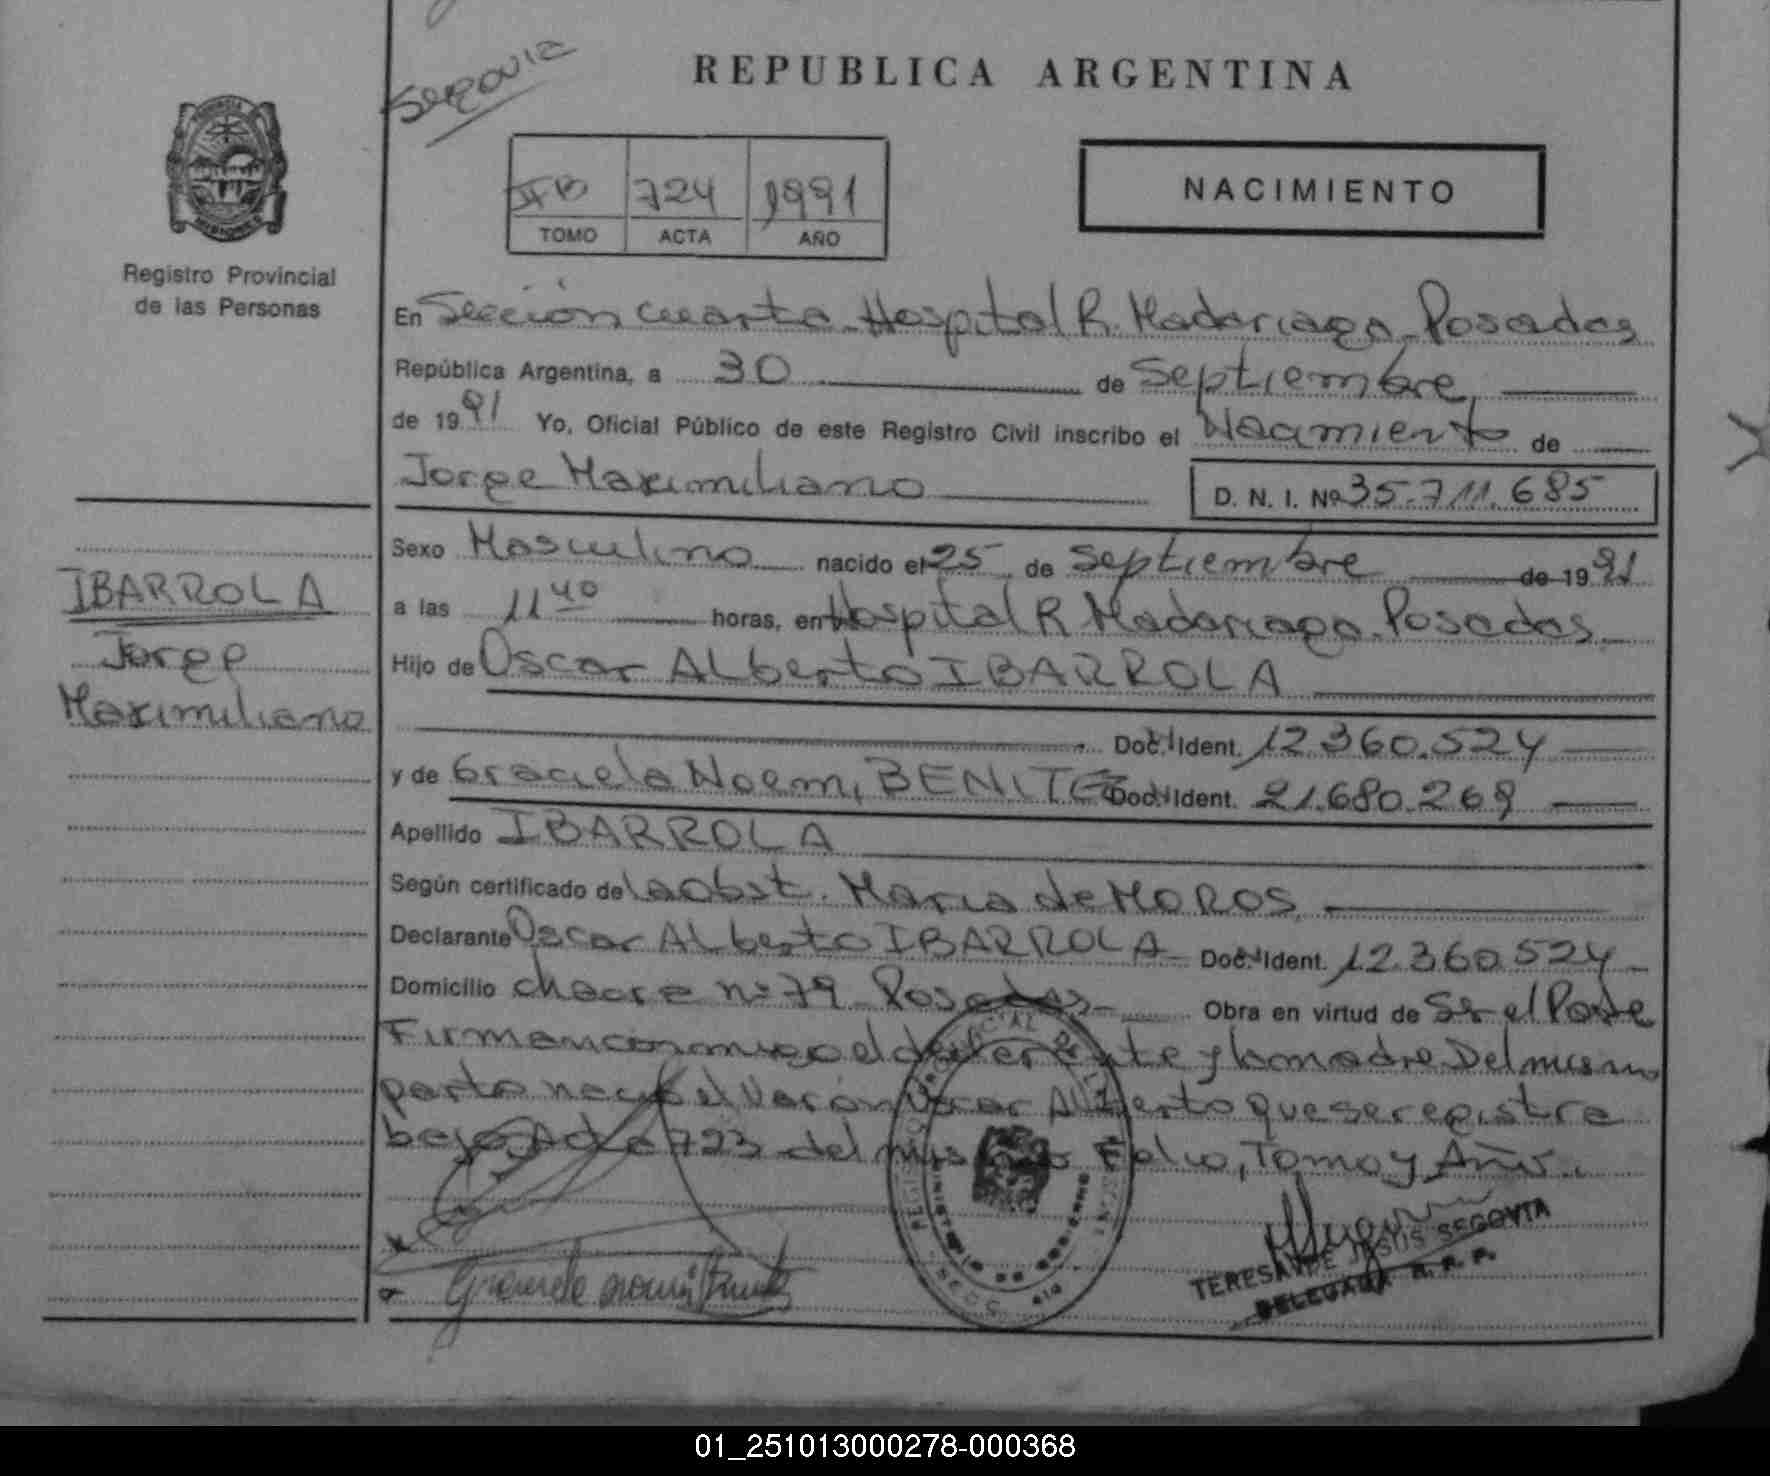 Segovia
REPUBLICA ARGENTINA
NACIMIENTO
724 1991
TOMO ACTA AÑO
Registro Provincial
de las Personas
En Sección cuarta Hospital R. Madariaga Posadas
República Argentina, a 30 de Septiembre
de 1991 Yo, Oficial Público de este Registro Civil inscribo el Nacimiento de
Jorge Maximiliano D. N. I. Nº 35.711.685
Sexo Masculino nacido el 25 de Septiembre de 1991
a las 11 40 horas, en Hospital R Madariaga. Posadas
Hijo de Oscar Alberto IBARROLA
Doc. Ident. 12.360.524
y de Graciela Noemi BENITEZ Doc. Ident. 21.680.269
Apellido IBARROLA
Según certificado de la obst. Maria de MOROS
Declarante Oscar Alberto IBARROLA Doc. Ident. 12.360.524
Domicilio chacra nº 79 Posadas Obra en virtud de Ser el Padre
Firman conmigo el declarante y la madre Del mismo
parto nacio el Varón Oscar Alberto que se registra
bajo Acta 723 del mismo Folio, Tomo y Año.
IBARROLA
Jorge
Maximiliano
TERESA DE JESUS SEGOVIA
DELEGADA R. P. P.
01_251013000278-000368